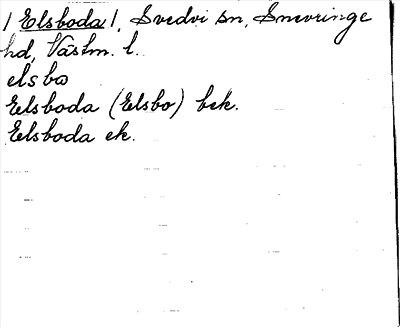 / Elsboda /, Svedvi sn, Snevringe
hd, Västm. l.
elsbω
Elsboda (Elsbo) bek.
Elsboda ek.